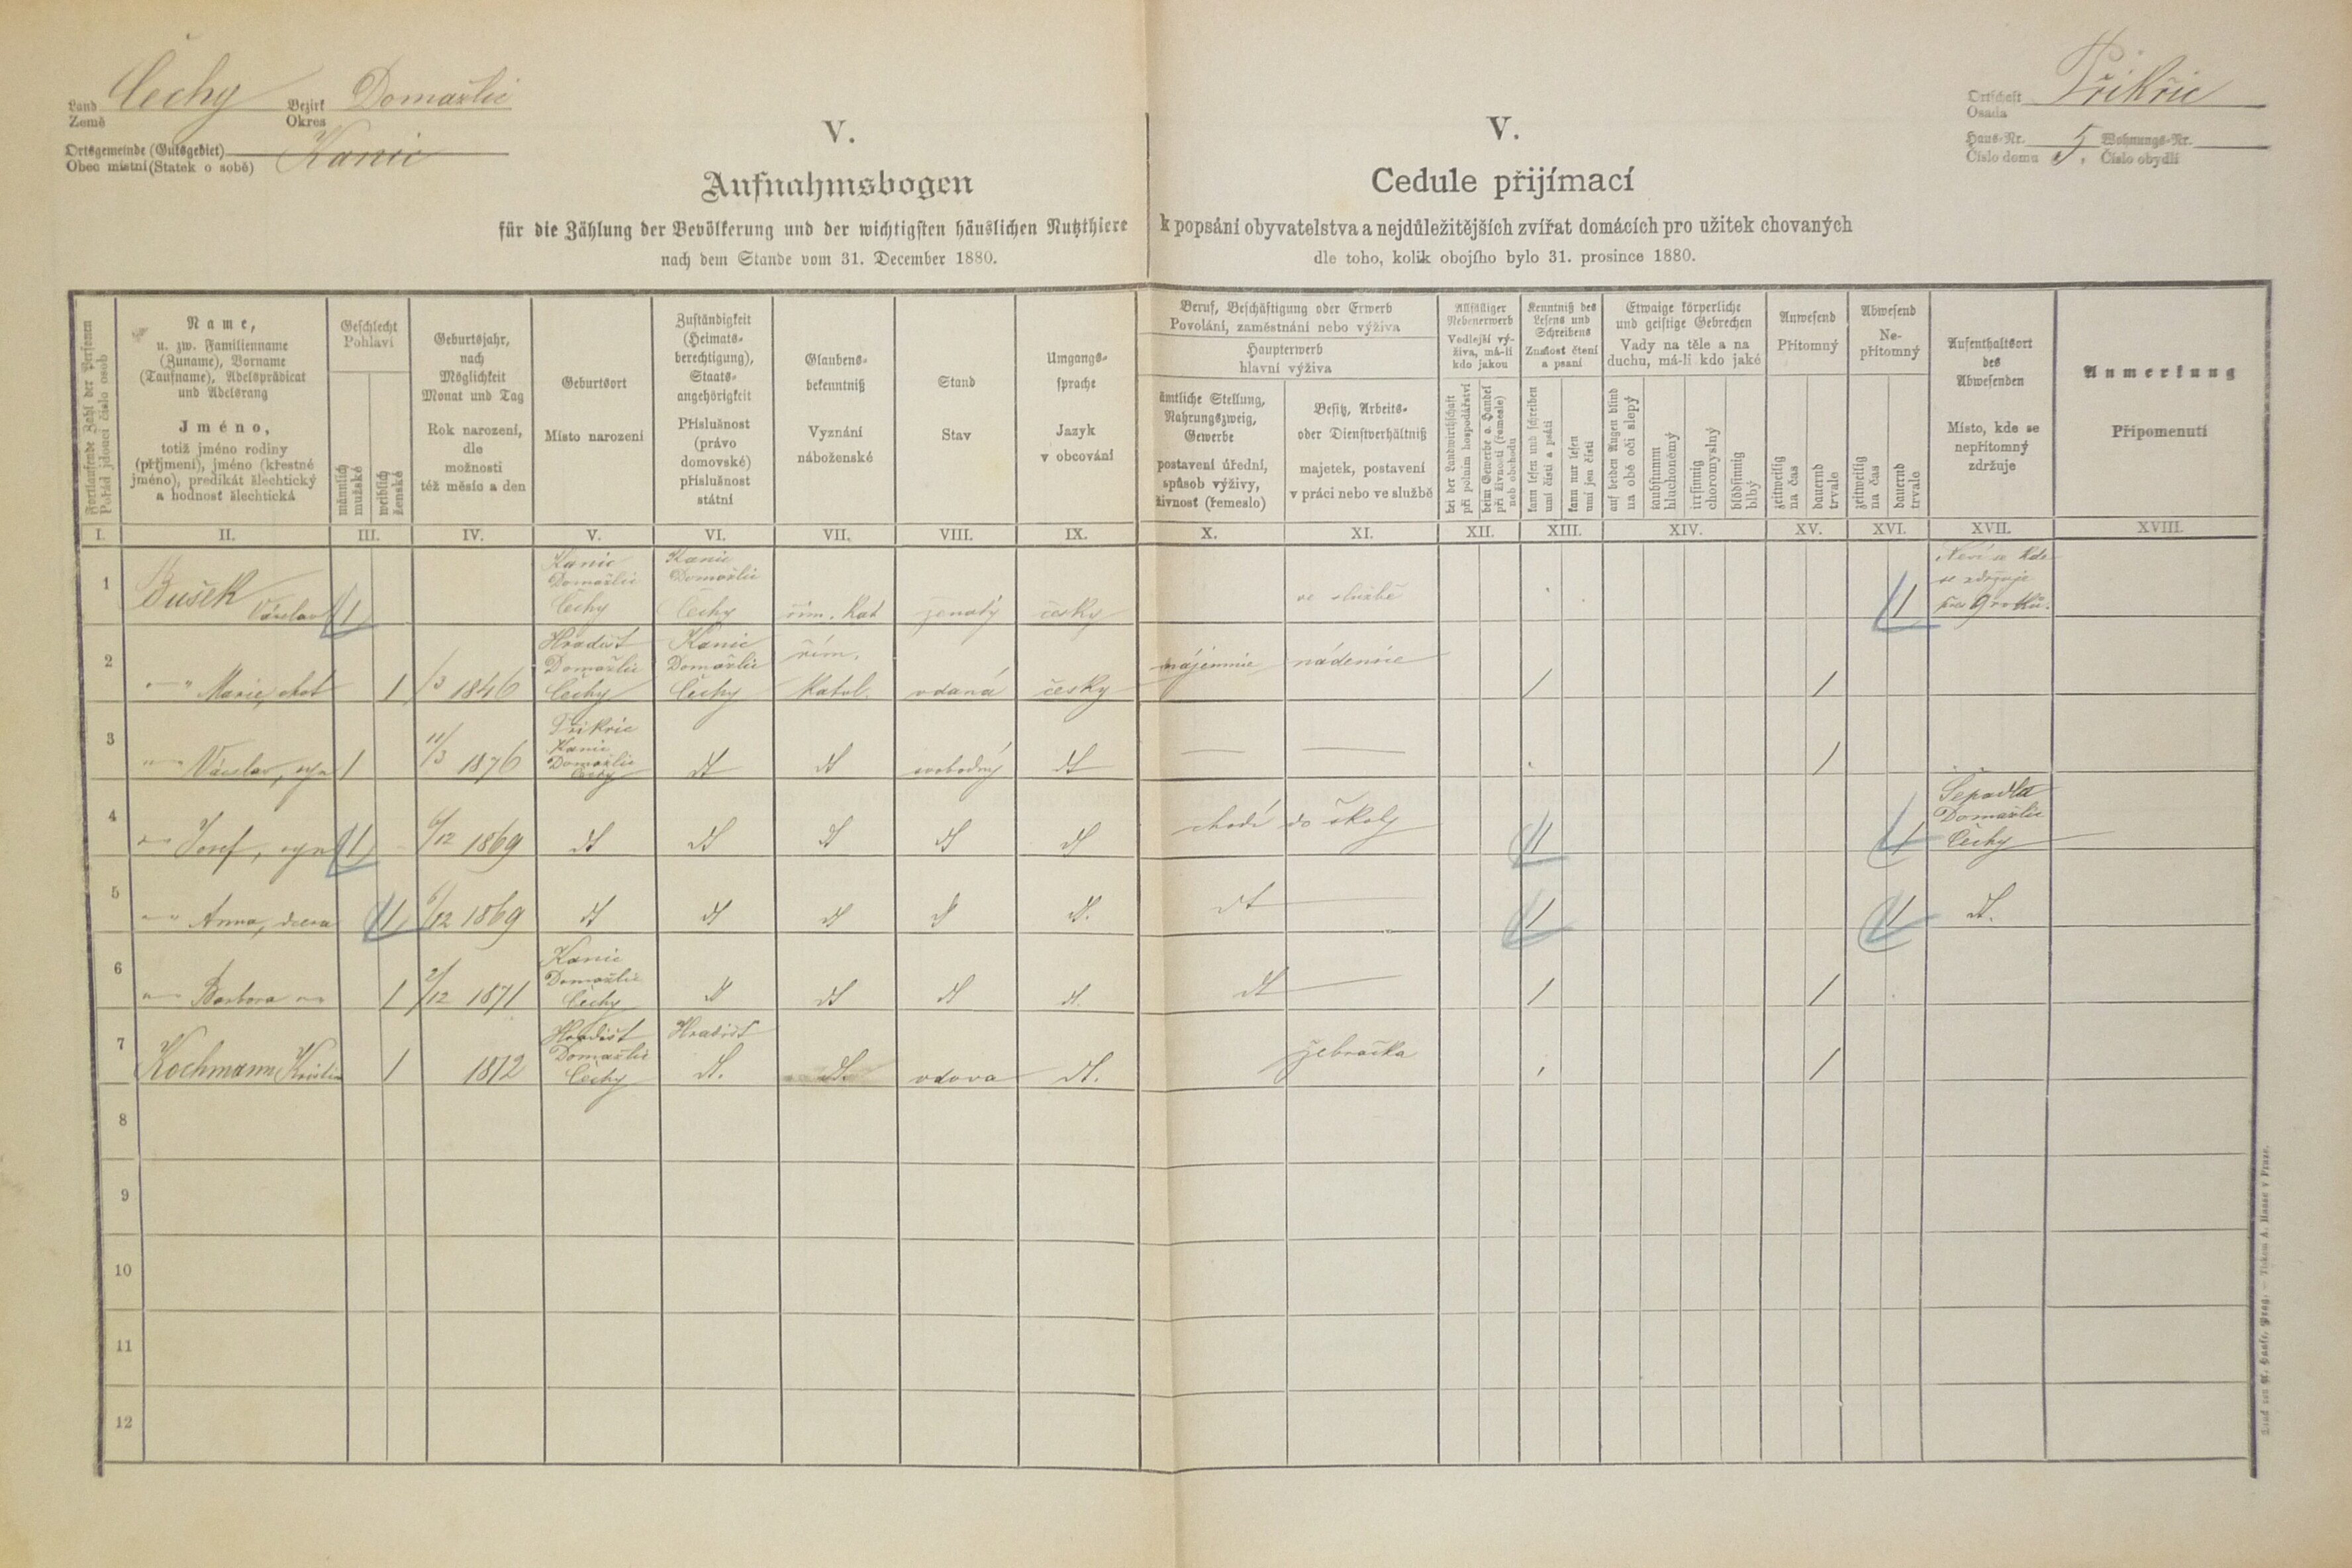 Land Čechy Bezirk Domažlic
Země Okres
Ortsgemeinde (Gutsgebiet) Kanic
Obec místní (Statek o sobě)
V.
Aufnahmsbogen
für die Zählung der Bevölkerung und der wichtigsten häuslichen Nutzthiere
nach dem Stande vom 31. December 1880.
Ortschaft Přikřic
Osada
Haus-Nr. 5. Wohnungs-Nr.
Číslo domu Číslo obydlí
V.
Cedule přijímací
k popsání obyvatelstva a nejdůležitějších zvířat domácích pro užitek chovaných
dle toho, kolik obojího bylo 31. prosince 1880.
Fortlaufende Zahl der Personen
Pořád jdoucí číslo osob
Name,
u. zw. Familienname
(Zuname), Vorname
(Taufname), Adelsprädicat
und Adelsrang
Jméno,
totiž jméno rodiny
(příjmení), jméno (křestné
jméno), predikát šlechtický
a hodnosť šlechtická
Geschlecht
Pohlaví
männlich
mužské
weiblich
ženské
Geburtsjahr,
nach
Möglichkeit
Monat und Tag
Rok narození,
dle
možnosti
též měsíc a den
Geburtsort
Místo narození
Zuständigkeit
(Heimats-
berechtigung),
Staats-
angehörigkeit
Příslušnost
(právo
domovské)
příslušnost
státní
Glaubens-
bekenntniß
Vyznání
náboženské
Stand
Stav
Umgangs-
sprache
Jazyk
v obcování
Beruf, Beschäftigung oder Erwerb
Povolání, zaměstnání nebo výživa
Haupterwerb
hlavní výživa
ämtliche Stellung,
Nahrungszweig,
Gewerbe
postavení úřední,
spůsob výživy,
živnosť (řemeslo)
Besitz, Arbeits-
oder Dienstverhältniß
majetek, postavení
v práci nebo ve službě
Allfälliger
Nebenerwerb
Vedlejší vý-
živa, má-li
kdo jakou
bei der Landwirthschaft
při polním hospodářství
beim Gewerbe o. Handel
při živnosti (řemesle)
neb obchodu
Kenntniß des
Lesens und
Schreibens
Známosť čtení
a psaní
kann lesen und schreiben
umí čísti a psáti
kann nur lesen
umí jen čísti
Etwaige körperliche
und geistige Gebrechen
Vady na těle a na
duchu, má-li kdo jaké
auf beiden Augen blind
na obě oči slepý
taubstumm
hluchoněmý
irrsinnig
choromyslný
blödsinnig
blbý
Anwesend
Přítomný
zeitweilig
na čas
dauernd
trvale
Abwesend
Ne-
přítomný
zeitweilig
na čas
dauernd
trvale
Aufenthaltsort
des
Abwesenden
Místo, kde se
nepřítomný
zdržuje
Anmerkung
Připomenutí
I. II. III. IV. V. VI. VII. VIII. IX. X. XI. XII. XIII. XIV. XV. XVI. XVII. XVIII.
Kanic Kanic Není se kde
1 Domažlic Domažlic se zdržuje
Bušek Václav 1 Čechy Čechy řím. kat ženatý česky ve službě 1 přes 9 roků.
Hradišt Kanic řím.
2 Domažlic Domažlic nájemnice nádenice
" Marie, chot 1 /3 1846 Čechy Čechy Katol. vdaná česky / /
Přikřic
3 11/3 Kanic
" Václav, syn 1 1876 Domažlic dt dt svobodný dt — — /
Čechy
Domažlic
4 " Josef, syn 1 6/12 1869 dt dt dt dt dt chodí do školy 1 1 Čechy
5 " Anna, dcera 1 6/12 1869 dt dt dt dt dt. dt — 1 1 dt.
Kanic
6 Domažlic
" Barbora " 1 2/12 1871 Čechy dt dt dt dt. dt — / /
Hradišt Hradišt
7 Domažlic žebračka
Kochmann 1 1812 Čechy dt. dt. vdova dt. /
8
9
10
11
12
Druck von A. Haase, Prag. — Tiskem A. Haase v Praze.